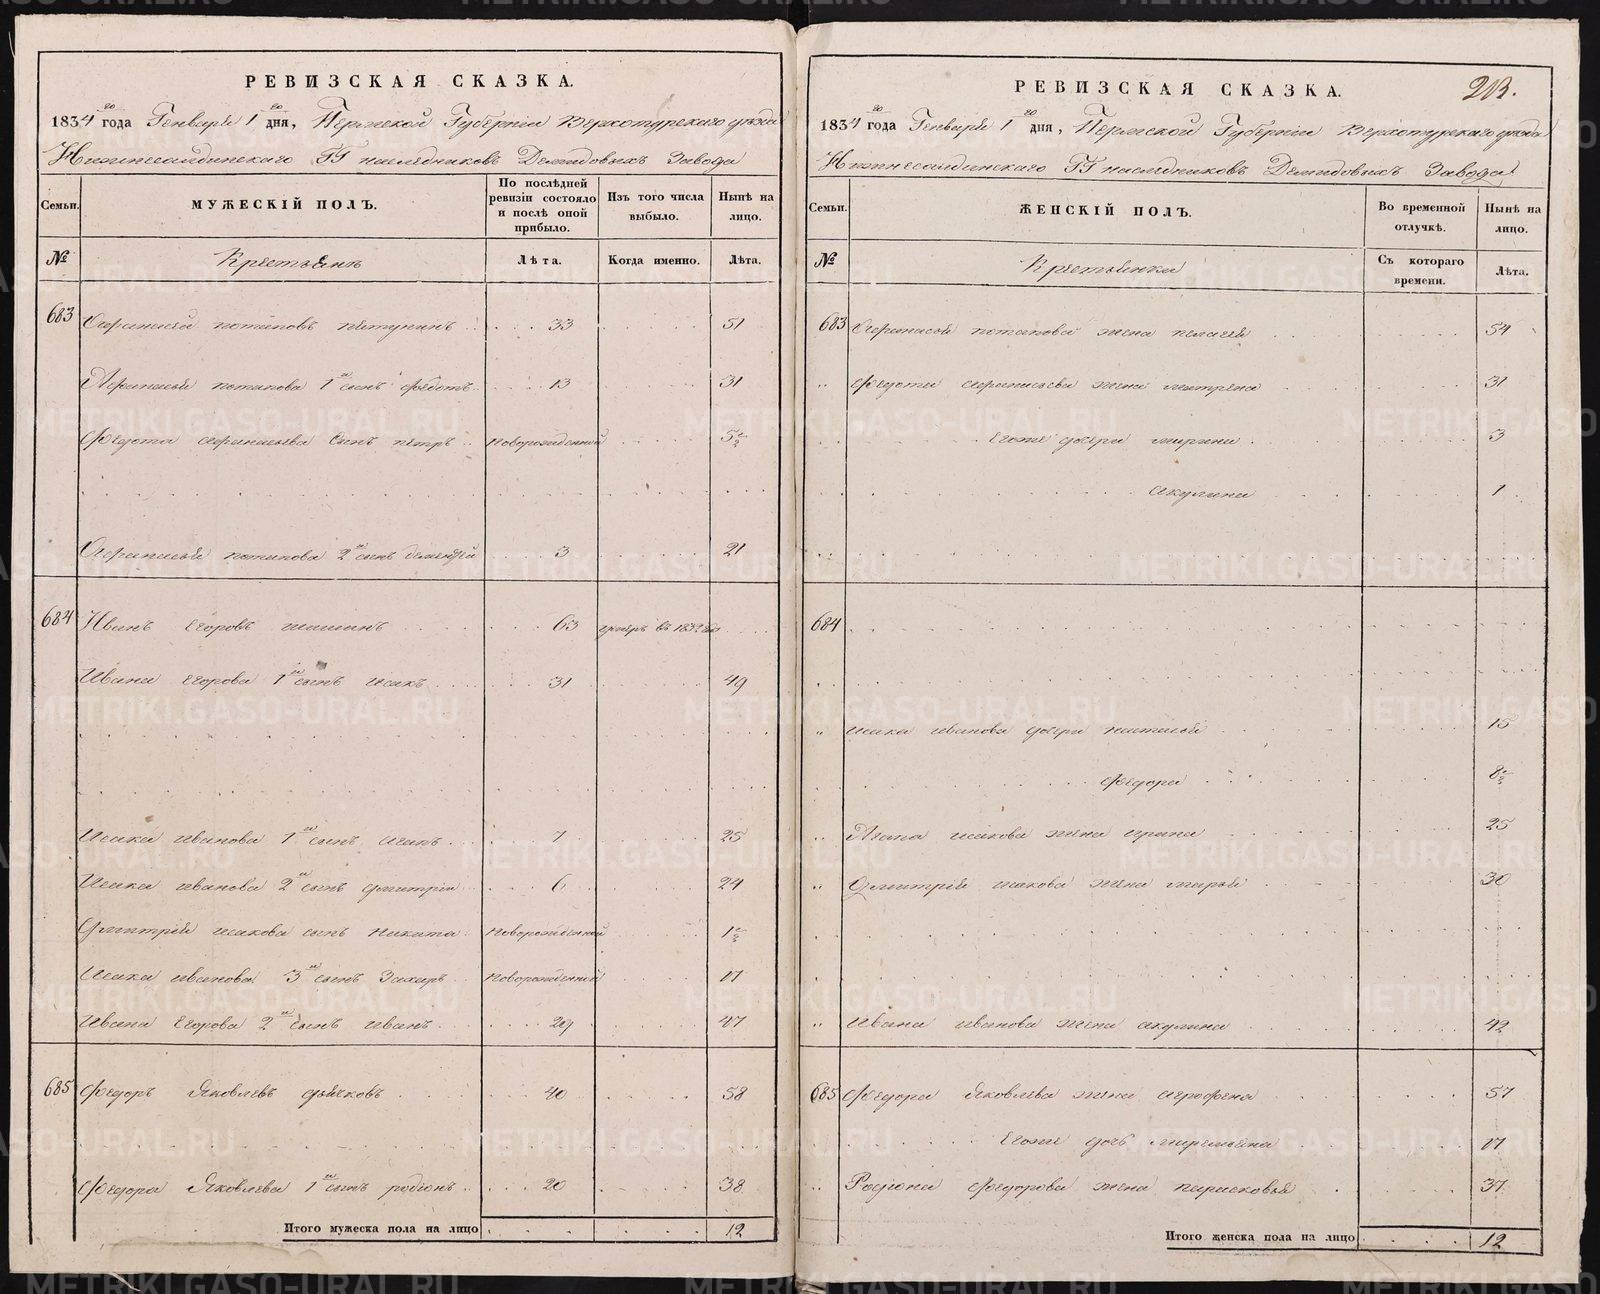 РЕВИЗСКАЯ СКАЗКА.
1834го года Генваря 1го дня, Пермской Губернiи Верхотурскаго уезда
Нижнесалдинскаго ГГ наследниковъ Демидовыхъ Завода
Семьи.
МУЖЕСКIЙ ПОЛЪ.
По послѣдней ревизiи состояло и послѣ оной прибыло.
Изъ того числа выбыло.
Нынѣ на лицо.
№
Крестьянъ
Лѣта.
Когда именно.
Лѣта.
683 Афанасей потаповъ петунинъ 33 51
Афанасья потапова 1й сынъ федотъ 13 31
Федота афанасьева сынъ петръ новорожденной 5½
Афанасья потапова 2й сынъ дементей 3 21
684 Иванъ Егоровъ шашинъ 63 умеръ въ 1832
Ивана Егорова 1й сынъ исакъ 31 49
Исака иванова 1й сынъ агапъ 7 25
Исака иванова 2й сынъ дмитрiй 6 24
Дмитрiя исакова сынъ никита новорожденной 1½
Исака иванова 3й сынъ Захаръ новорожденной 17
Ивана Егорова 2й сынъ иванъ 29 47
685 Федоръ Яковлевъ дьячковъ 40 58
Федора Яковлева 1й сынъ родiонъ 20 38
Итого мужеска пола на лицо 12
РЕВИЗСКАЯ СКАЗКА.
213.
1834го года Генваря 1го дня, Пермской Губернiи Верхотурскаго уезда
Нижнесалдинскаго ГГ наследниковъ Демидовыхъ Завода
Семьи.
ЖЕНСКIЙ ПОЛЪ.
Во временной отлучкѣ.
Нынѣ на лицо.
№
Крестьянки
Съ котораго времени.
Лѣта.
683 Афанасья потапова жена пелагея 54
" Федота афанасьева жена матрена 31
Егоже дочери марина 3
акулина 1
684
" исака иванова дочери наталья 15
федора 8½
" Агапа исакова жена ирина 25
" Дмитрiя исакова жена марья 30
" Ивана иванова жена акулина 42
685 Федора Яковлева жена агрофена 57
Егоже дочь маремьяна 17
" Родiона федорова жена парасковья 37
Итого женска пола на лицо 12
METRIKI.GASO-URAL.RU